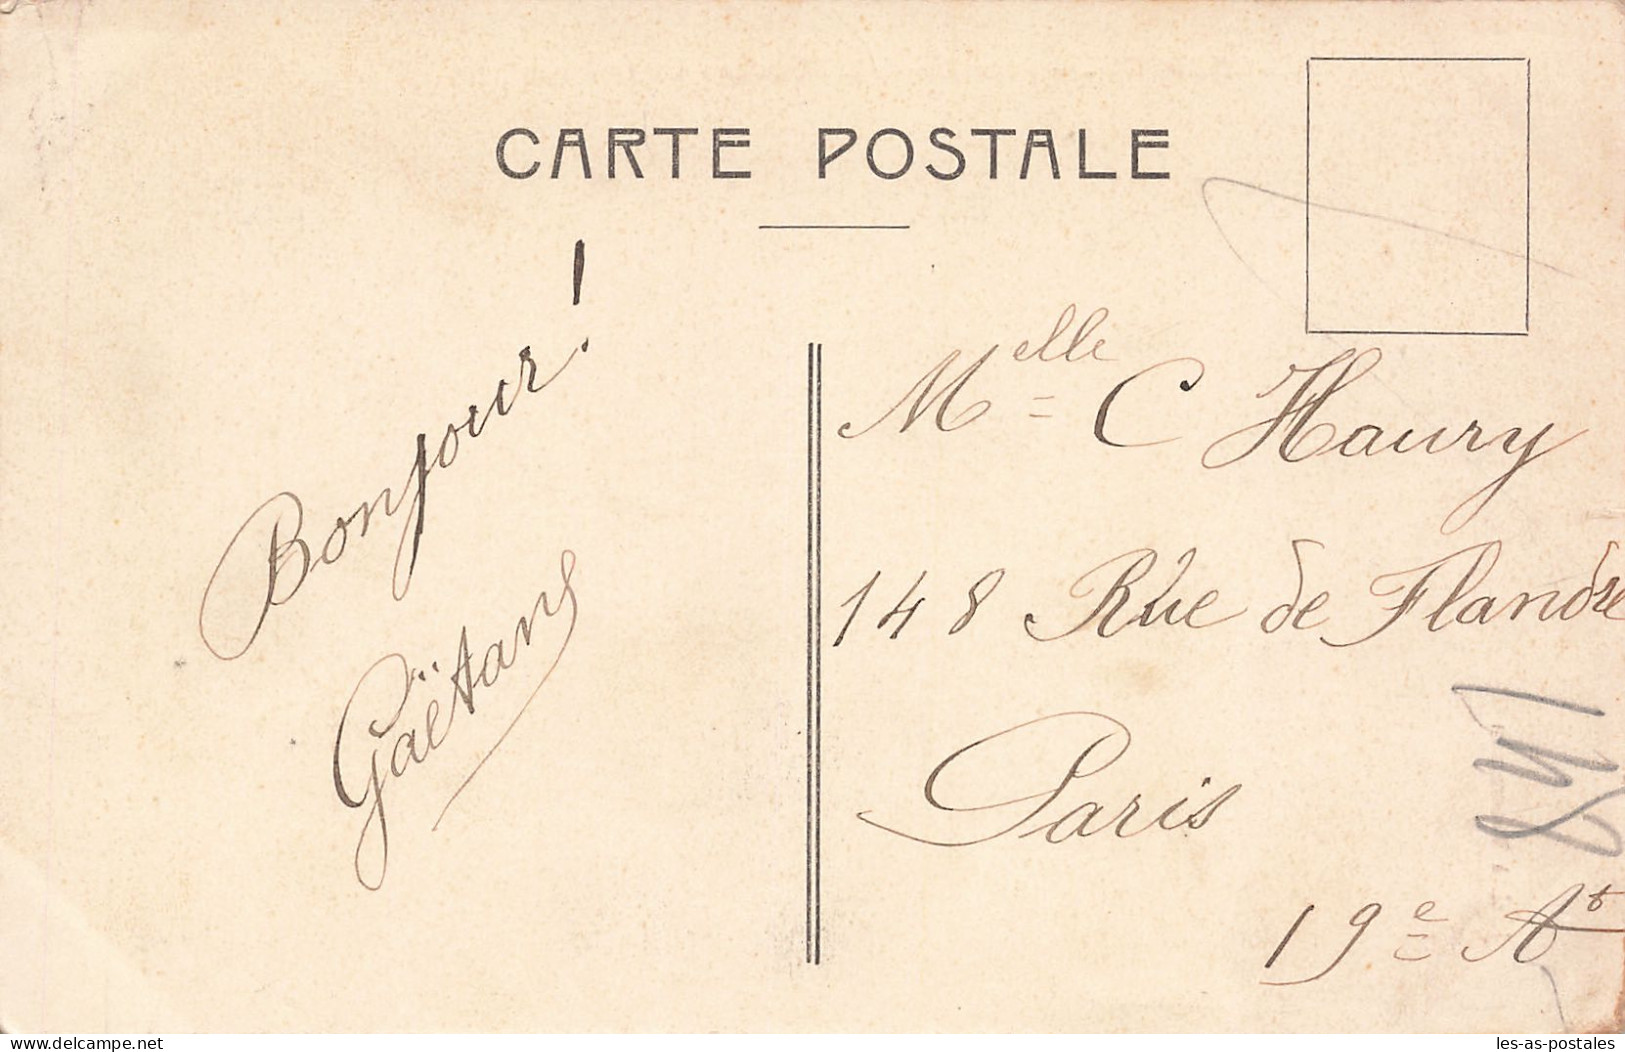 CARTE POSTALE
Bonjour !
Gaëtans
Melle C Haury
148 Rue de Flandre
Paris
19e At
Delcampe.net
les-as-postales